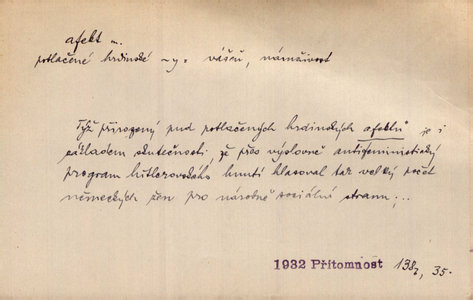 afekt m.
potlačené hrdinské ~y = vášeň, náruživost
Týž přirozený pud potlačených hrdinských afektů je i
základem skutečnosti, že přes výslovně antifeministický
program hitlerovského hnutí hlasoval tak velký počet
německých žen pro národně sociální stranu...
1932 Přítomnost 138, 35.